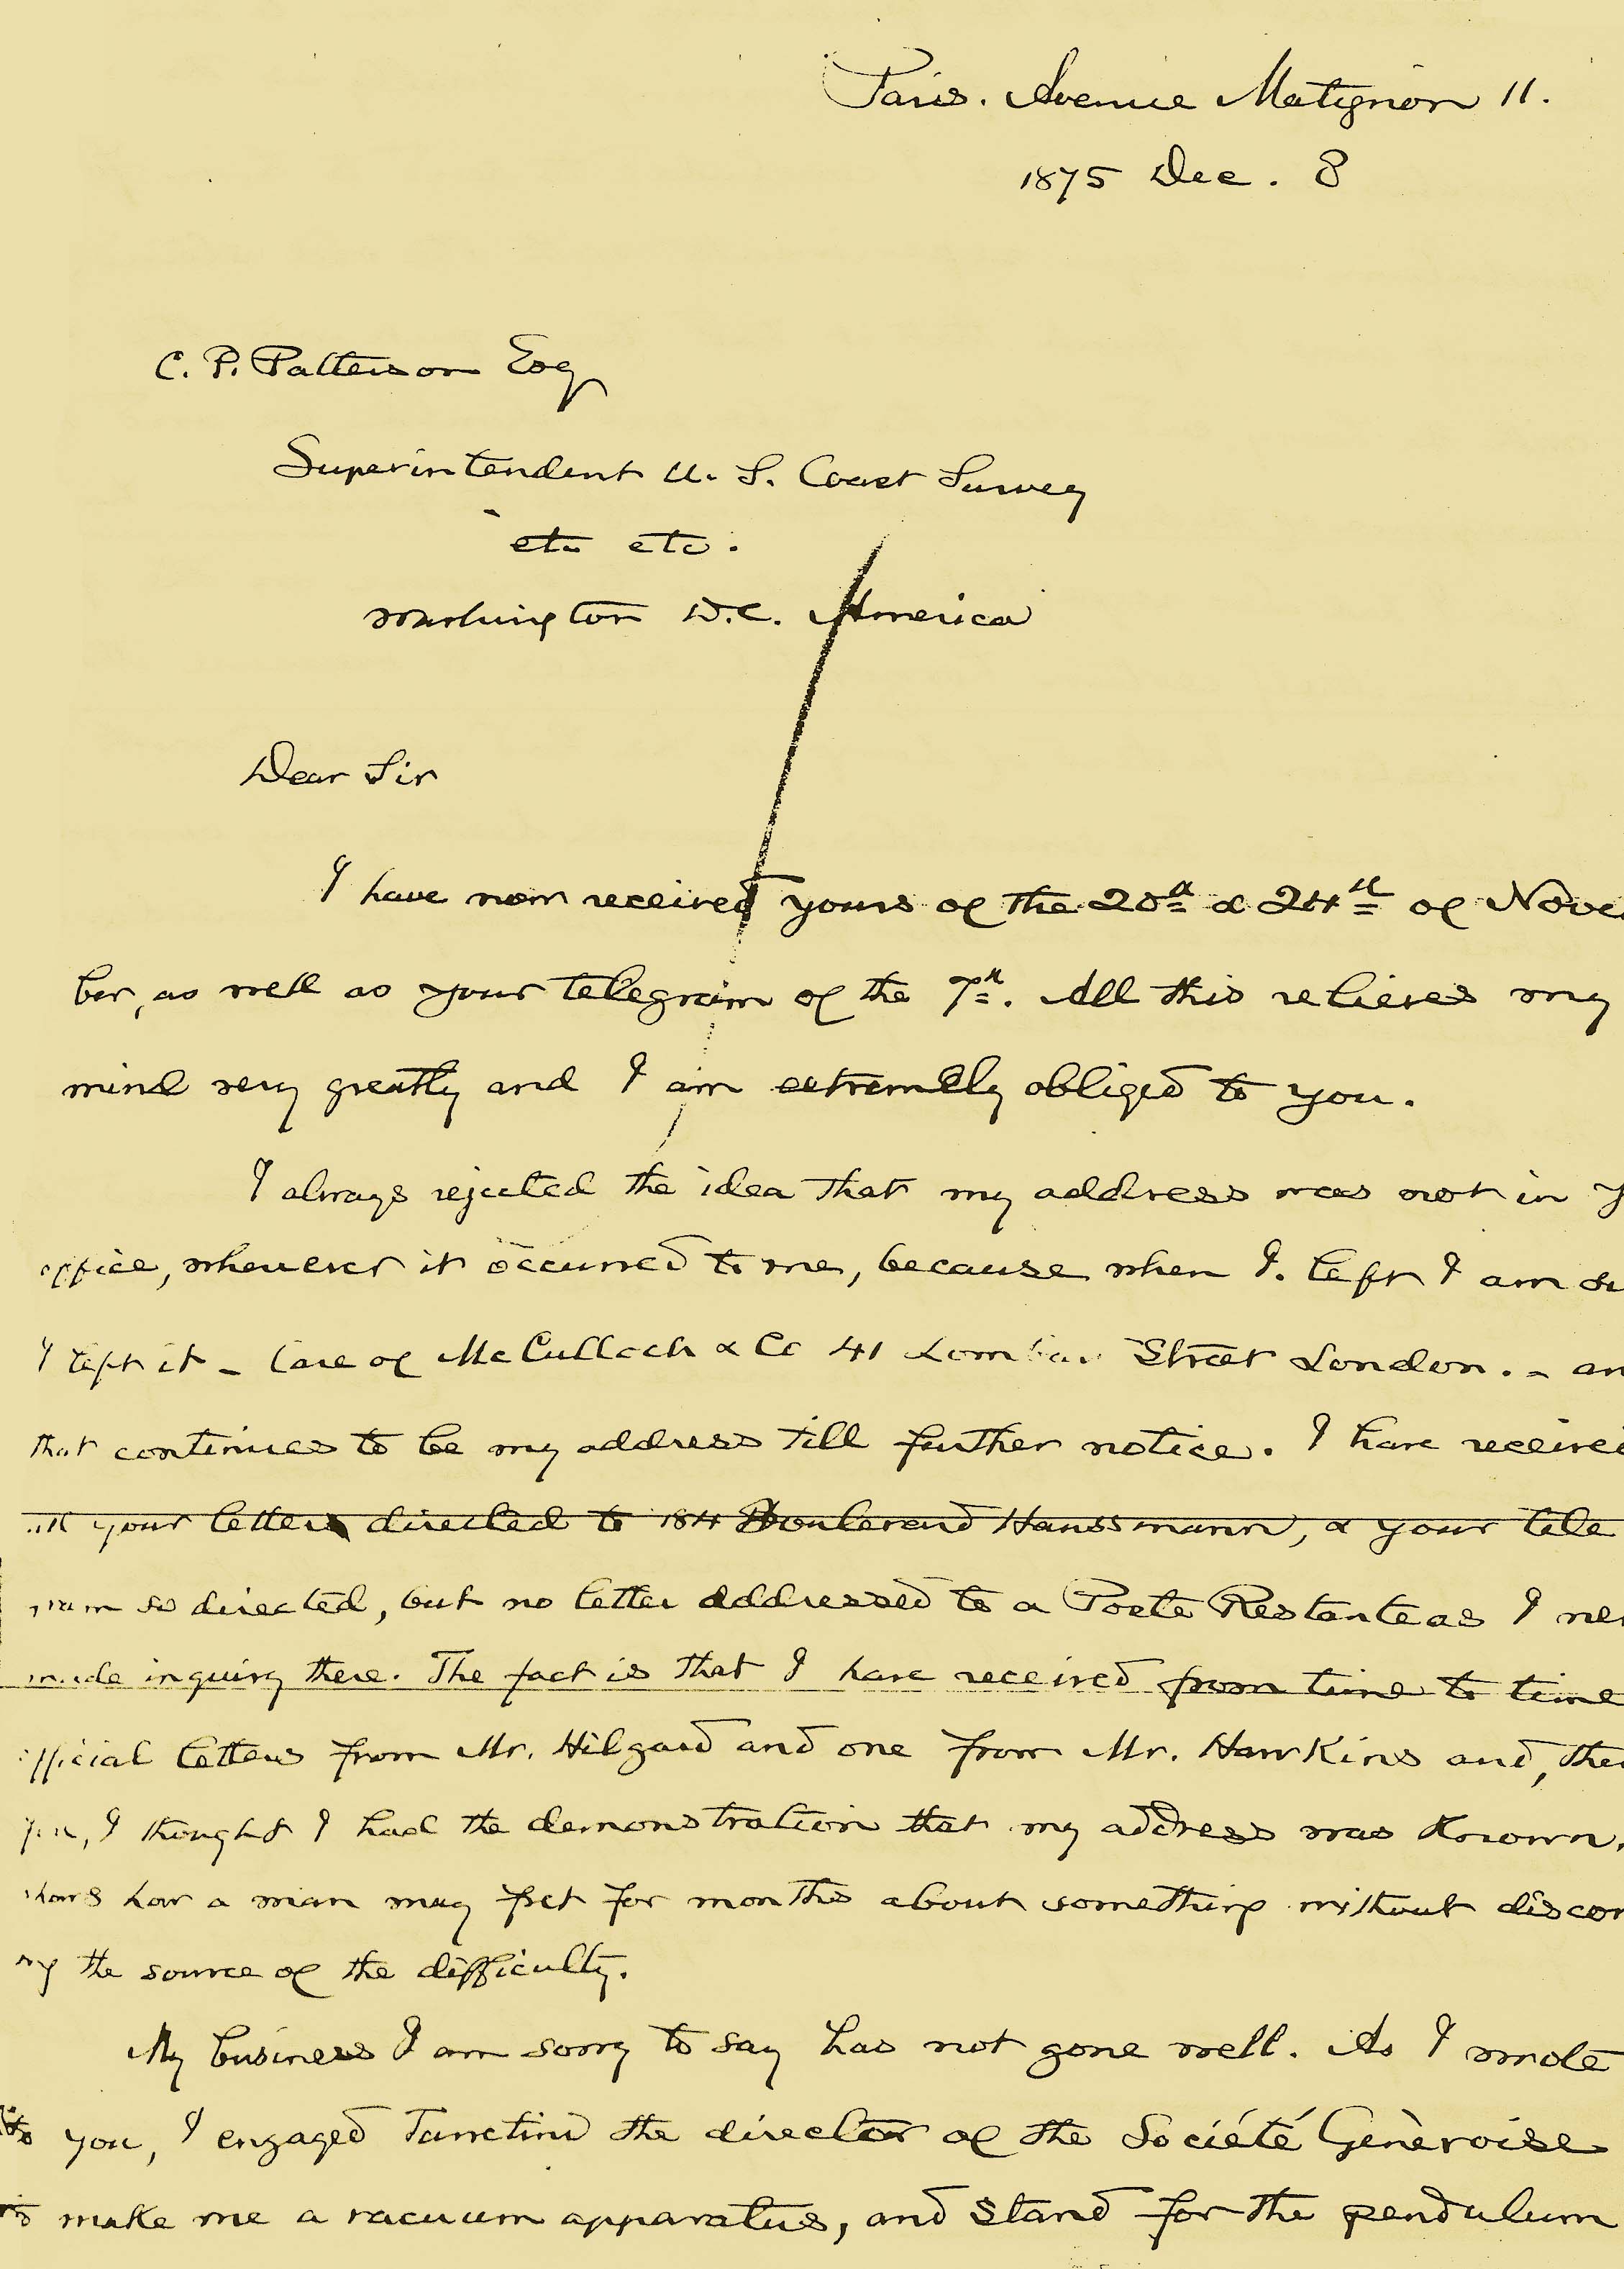 Paris. Avenue Matignon 11.
1875 Dec. 8
C. P. Patterson Esq
Superintendent U. S. Coast Survey
etc etc.
Washington D.C. America
Dear Sir
I have now received yours of the 20th & 24th of Novem
ber, as well as your telegram of the 7th. All this relieves my
mind very greatly and I am extremely obliged to you.
I always rejected the idea that my address was not in y
office, whenever it occurred to me, because when I left I am su
I left it - Care of McCulloch & Co 41 Lombar Street London. - an
that continues to be my address till further notice. I have received
all your letters directed to 184 Boulevard Haussmann, & your tele
gram so directed, but no letter addressed to a Poste Restante as I nev
made inquiry there. The fact is that I have received from time to time
official letters from Mr. Hilgard and one from Mr. Hawkins and, the
fore, I thought I had the demonstration that my address was known.
shows how a man may fret for months about something without discov
ing the source of the difficulty.
My business I am sorry to say has not gone well. As I wrote
to you, I engaged the director of the Société Génèvoise
to make me a vacuum apparatus, and stand for the pendulum